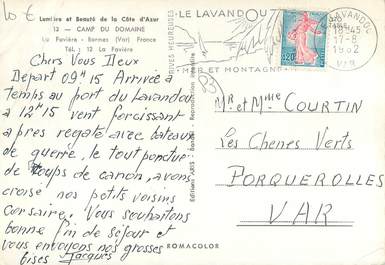 10 €
Lumière et Beauté de la Côte d'Azur
12 — CAMP DU DOMAINE
La Favière - Bormes (Var) France
Tél : 12 La Favière
Chers Vous Deux
Depart 09H15 Arrivée a
temps au port du Lavandou
a 12H15 vent forcissant
apres regate avec bateaux
de guerre, le tout ponctue
de coups de canon, avons
croise nos petits voisins
Corsaire. Vous souhaitons
bonne fin de séjour et
vous envoyons nos grosses
bises Jacques
ROMACOLOR
LE LAVANDOU
RIVES HEUREUSES
MER ET MONTAGNE
LE LAVANDOU
18H45
1962
VAR
0,20
83
Mr et Mme COURTIN
Les Chenes Verts
PORQUEROLLES
VAR